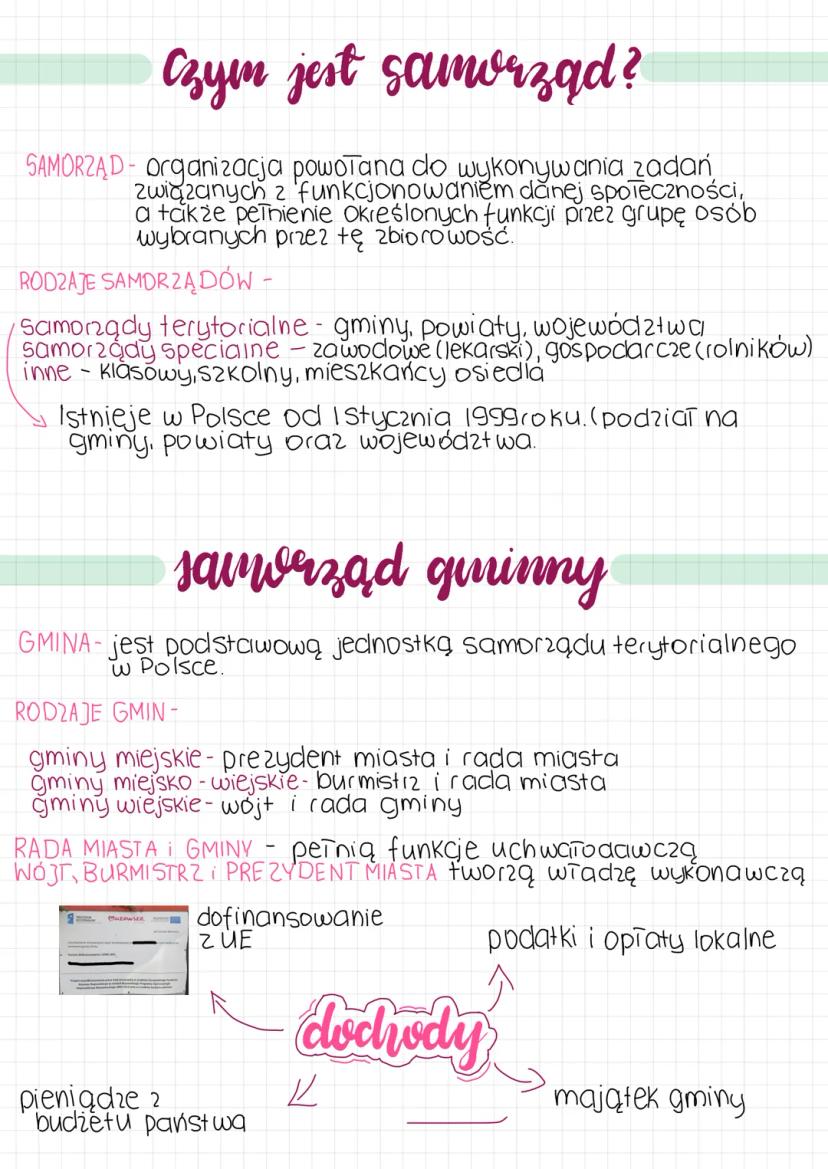 Czym jest samorząd?
SAMORZĄD - organizacja powołana do wykonywania zadań
związanych z funkcjonowaniem danej społeczności,
a także pełnienie określonych funkcji przez grupę osób
wybranych przez tę zbiorowość.
RODZAJE SAMORZĄDÓW -
samorządy terytorialne - gminy, powiaty, województwa
samorządy specialne - zawodowe (lekarski), gospodarcze (rolników)
inne - klasowy, szkolny, mieszkańcy osiedla
Istnieje w Polsce od 1 Stycznia 1999 roku. (podział na
gminy, powiaty oraz województwa.
samorząd gminny
GMINA - jest podstawową jednostką samorządu terytorialnego
w Polsce.
RODZAJE GMIN -
gminy miejskie - prezydent miasta i rada miasta
gminy miejsko - wiejskie - burmistrz i rada miasta
gminy wiejskie - wójt i rada gminy
RADA MIASTA i GMINY - pełnią funkcje uchwałodawczą
WÓJT, BURMISTRZ i PREZYDENT MIASTA tworzą władzę wykonawczą
dofinansowanie
z UE
podatki i opłaty lokalne
dochody
pieniądze z
budżetu państwa
majątek gminy